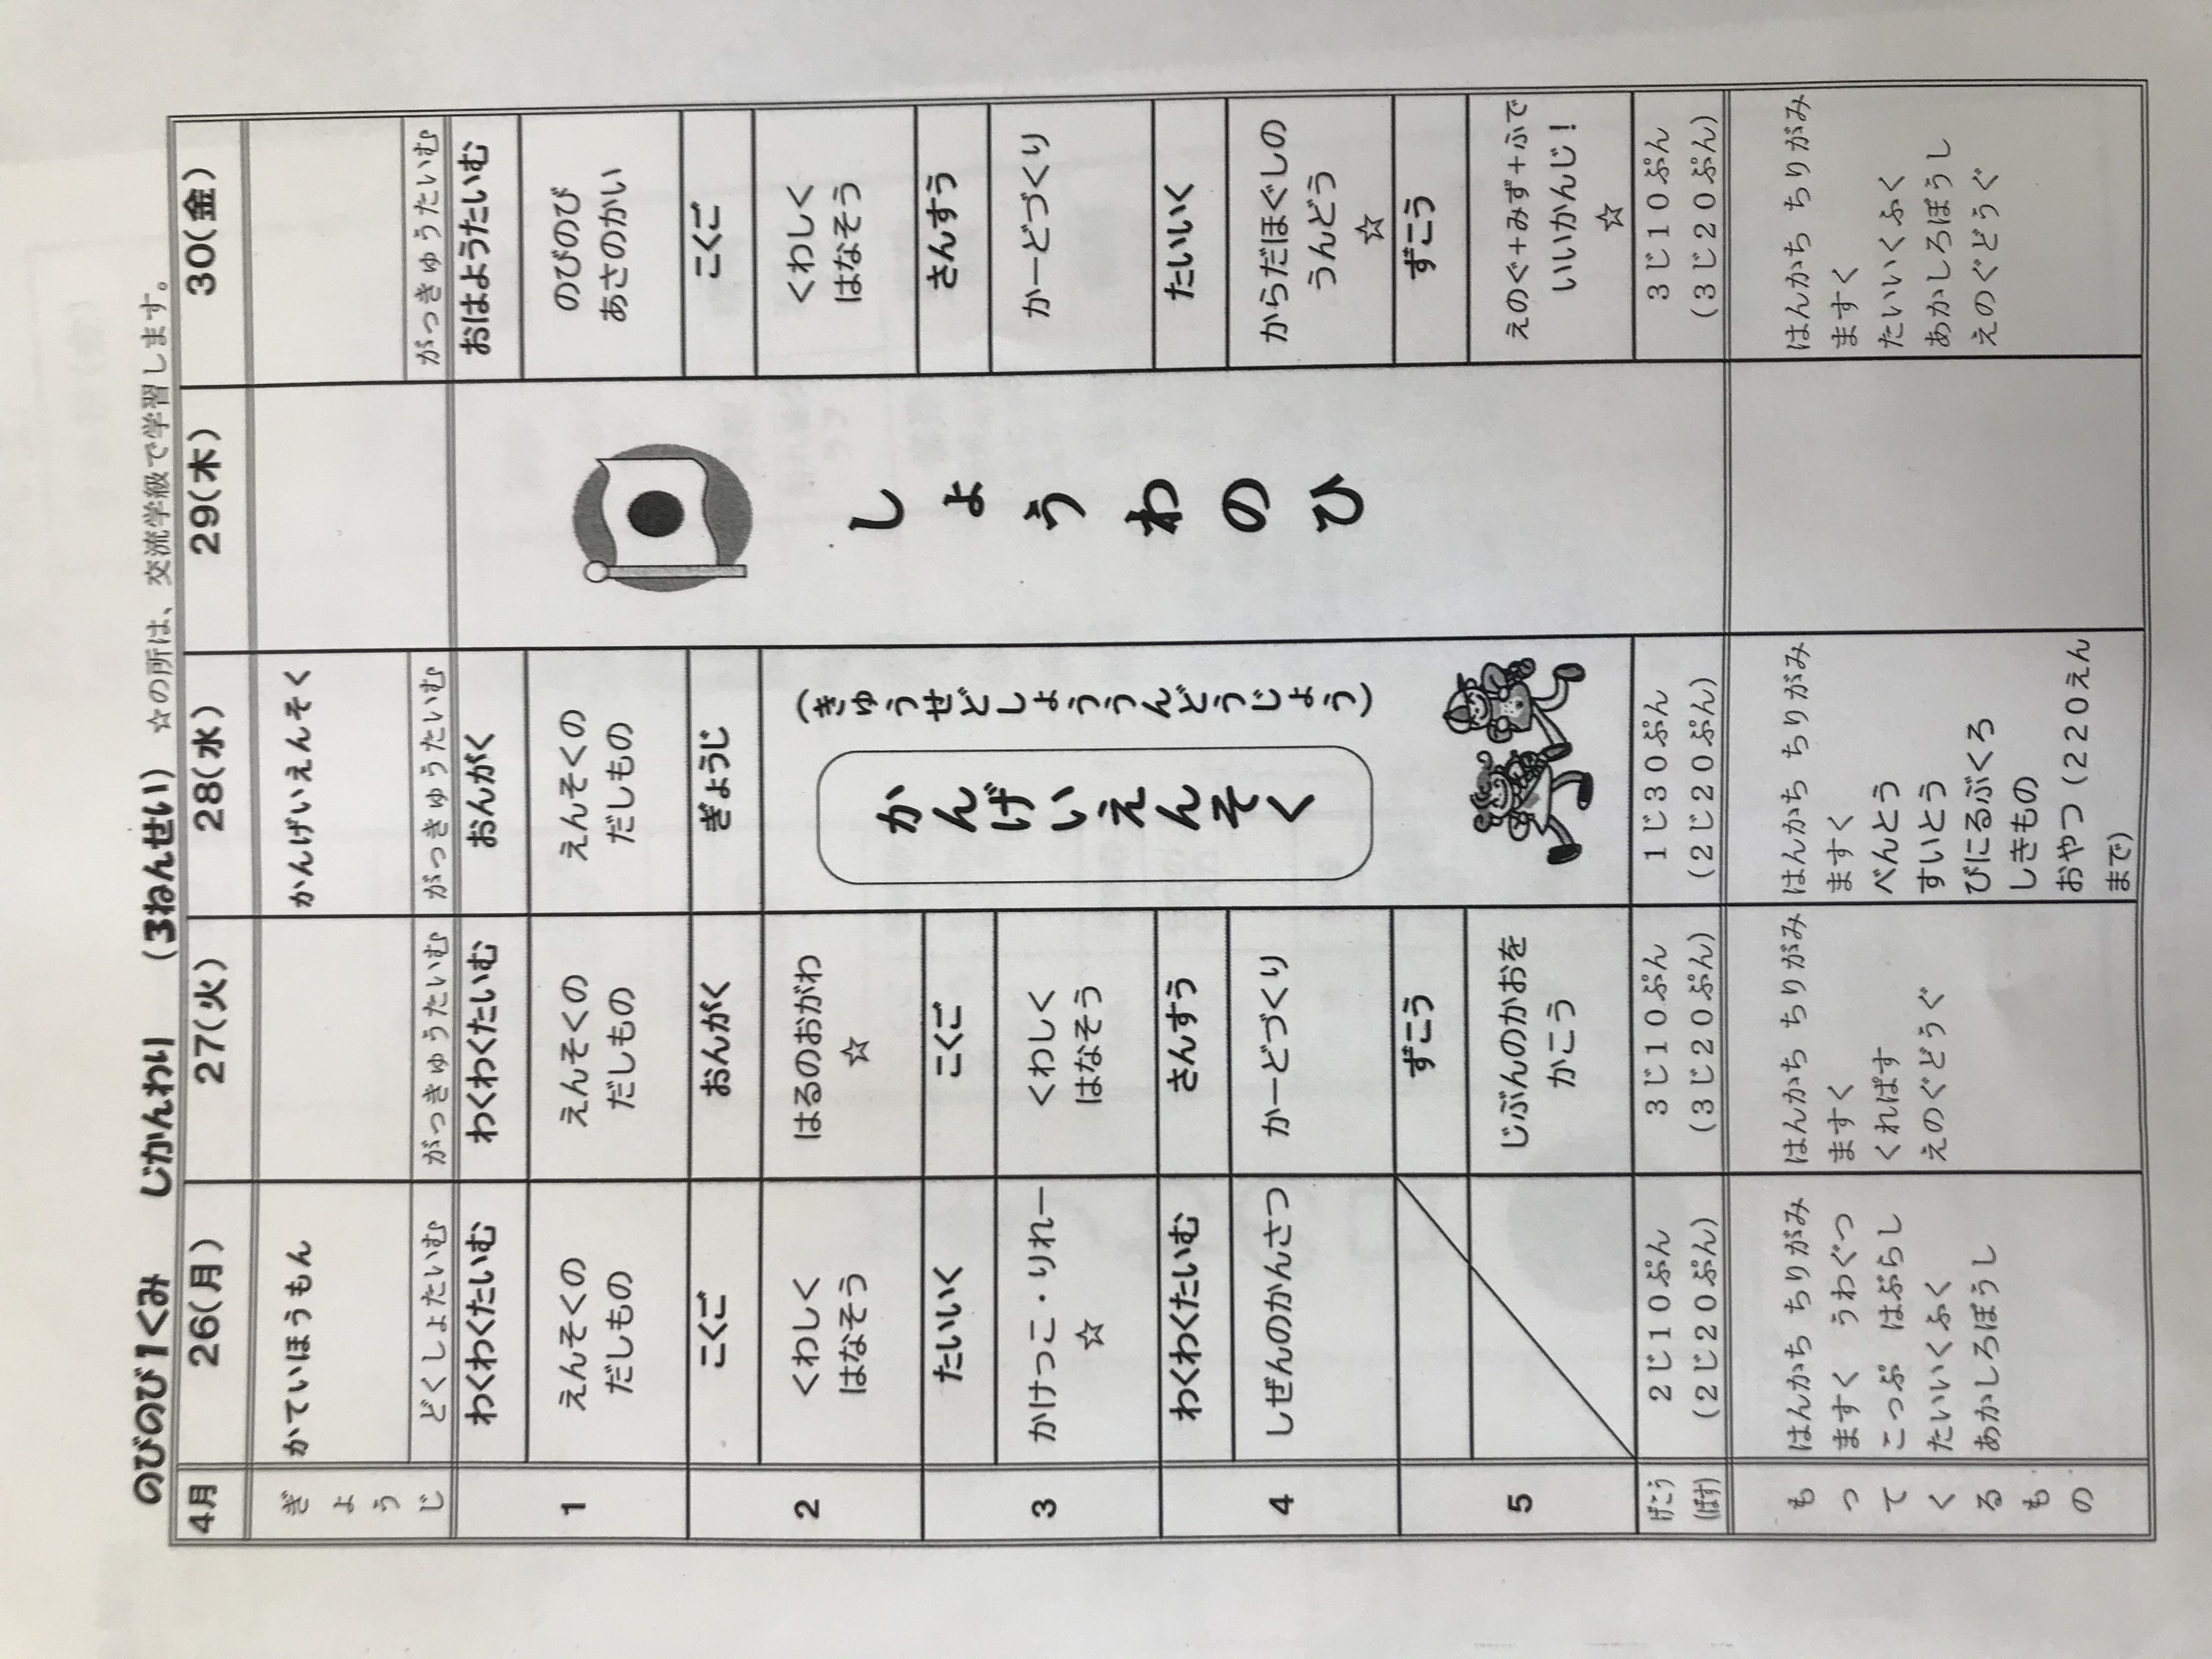 のびのび1くみ　じかんわり　(3ねんせい)　☆の所は、交流学級で学習します。
4月　26(月)　27(火)　28(水)　29(木)　30(金)
ぎょうじ　かていほうもん　かんげいえんそく
どくしょたいむ　がっきゅうたいむ　がっきゅうたいむ　がっきゅうたいむ
1
わくわくたいむ　わくわくたいむ　おんがく　おはようたいむ
えんそくの　えんそくの　えんそくの　のびのび
だしもの　だしもの　だしもの　あさのかい
2
こくご　おんがく　ぎょうじ　こくご
くわしく　はるのおがわ　くわしく
はなそう　☆　はなそう
3
たいいく　こくご　さんすう
かけっこ・りれー　くわしく　かーどづくり
☆　はなそう
4
わくわくたいむ　さんすう　たいいく
しぜんのかんさつ　かーどづくり　からだほぐしの
うんどう
☆
5
ずこう　ずこう
じぶんのかおを　えのぐ+みず+ふで
かこう　いいかんじ!
☆
かんげいえんそく
(きゅうせどしょううんどうじょう)
しょうわのひ
げこう　2じ10ぷん　3じ10ぷん　1じ30ぷん　3じ10ぷん
(ばす)　(2じ20ぷん)　(3じ20ぷん)　(2じ20ぷん)　(3じ20ぷん)
もってくるもの
はんかち ちりがみ　はんかち ちりがみ　はんかち ちりがみ　はんかち ちりがみ
ますく　うわぐつ　ますく　ますく　ますく
こっぷ　はぶらし　くれぱす　べんとう　たいいくふく
たいいくふく　えのぐどうぐ　すいとう　あかしろぼうし
あかしろぼうし　びにるぶくろ　えのぐどうぐ
しきもの
おやつ(220えん
まで)